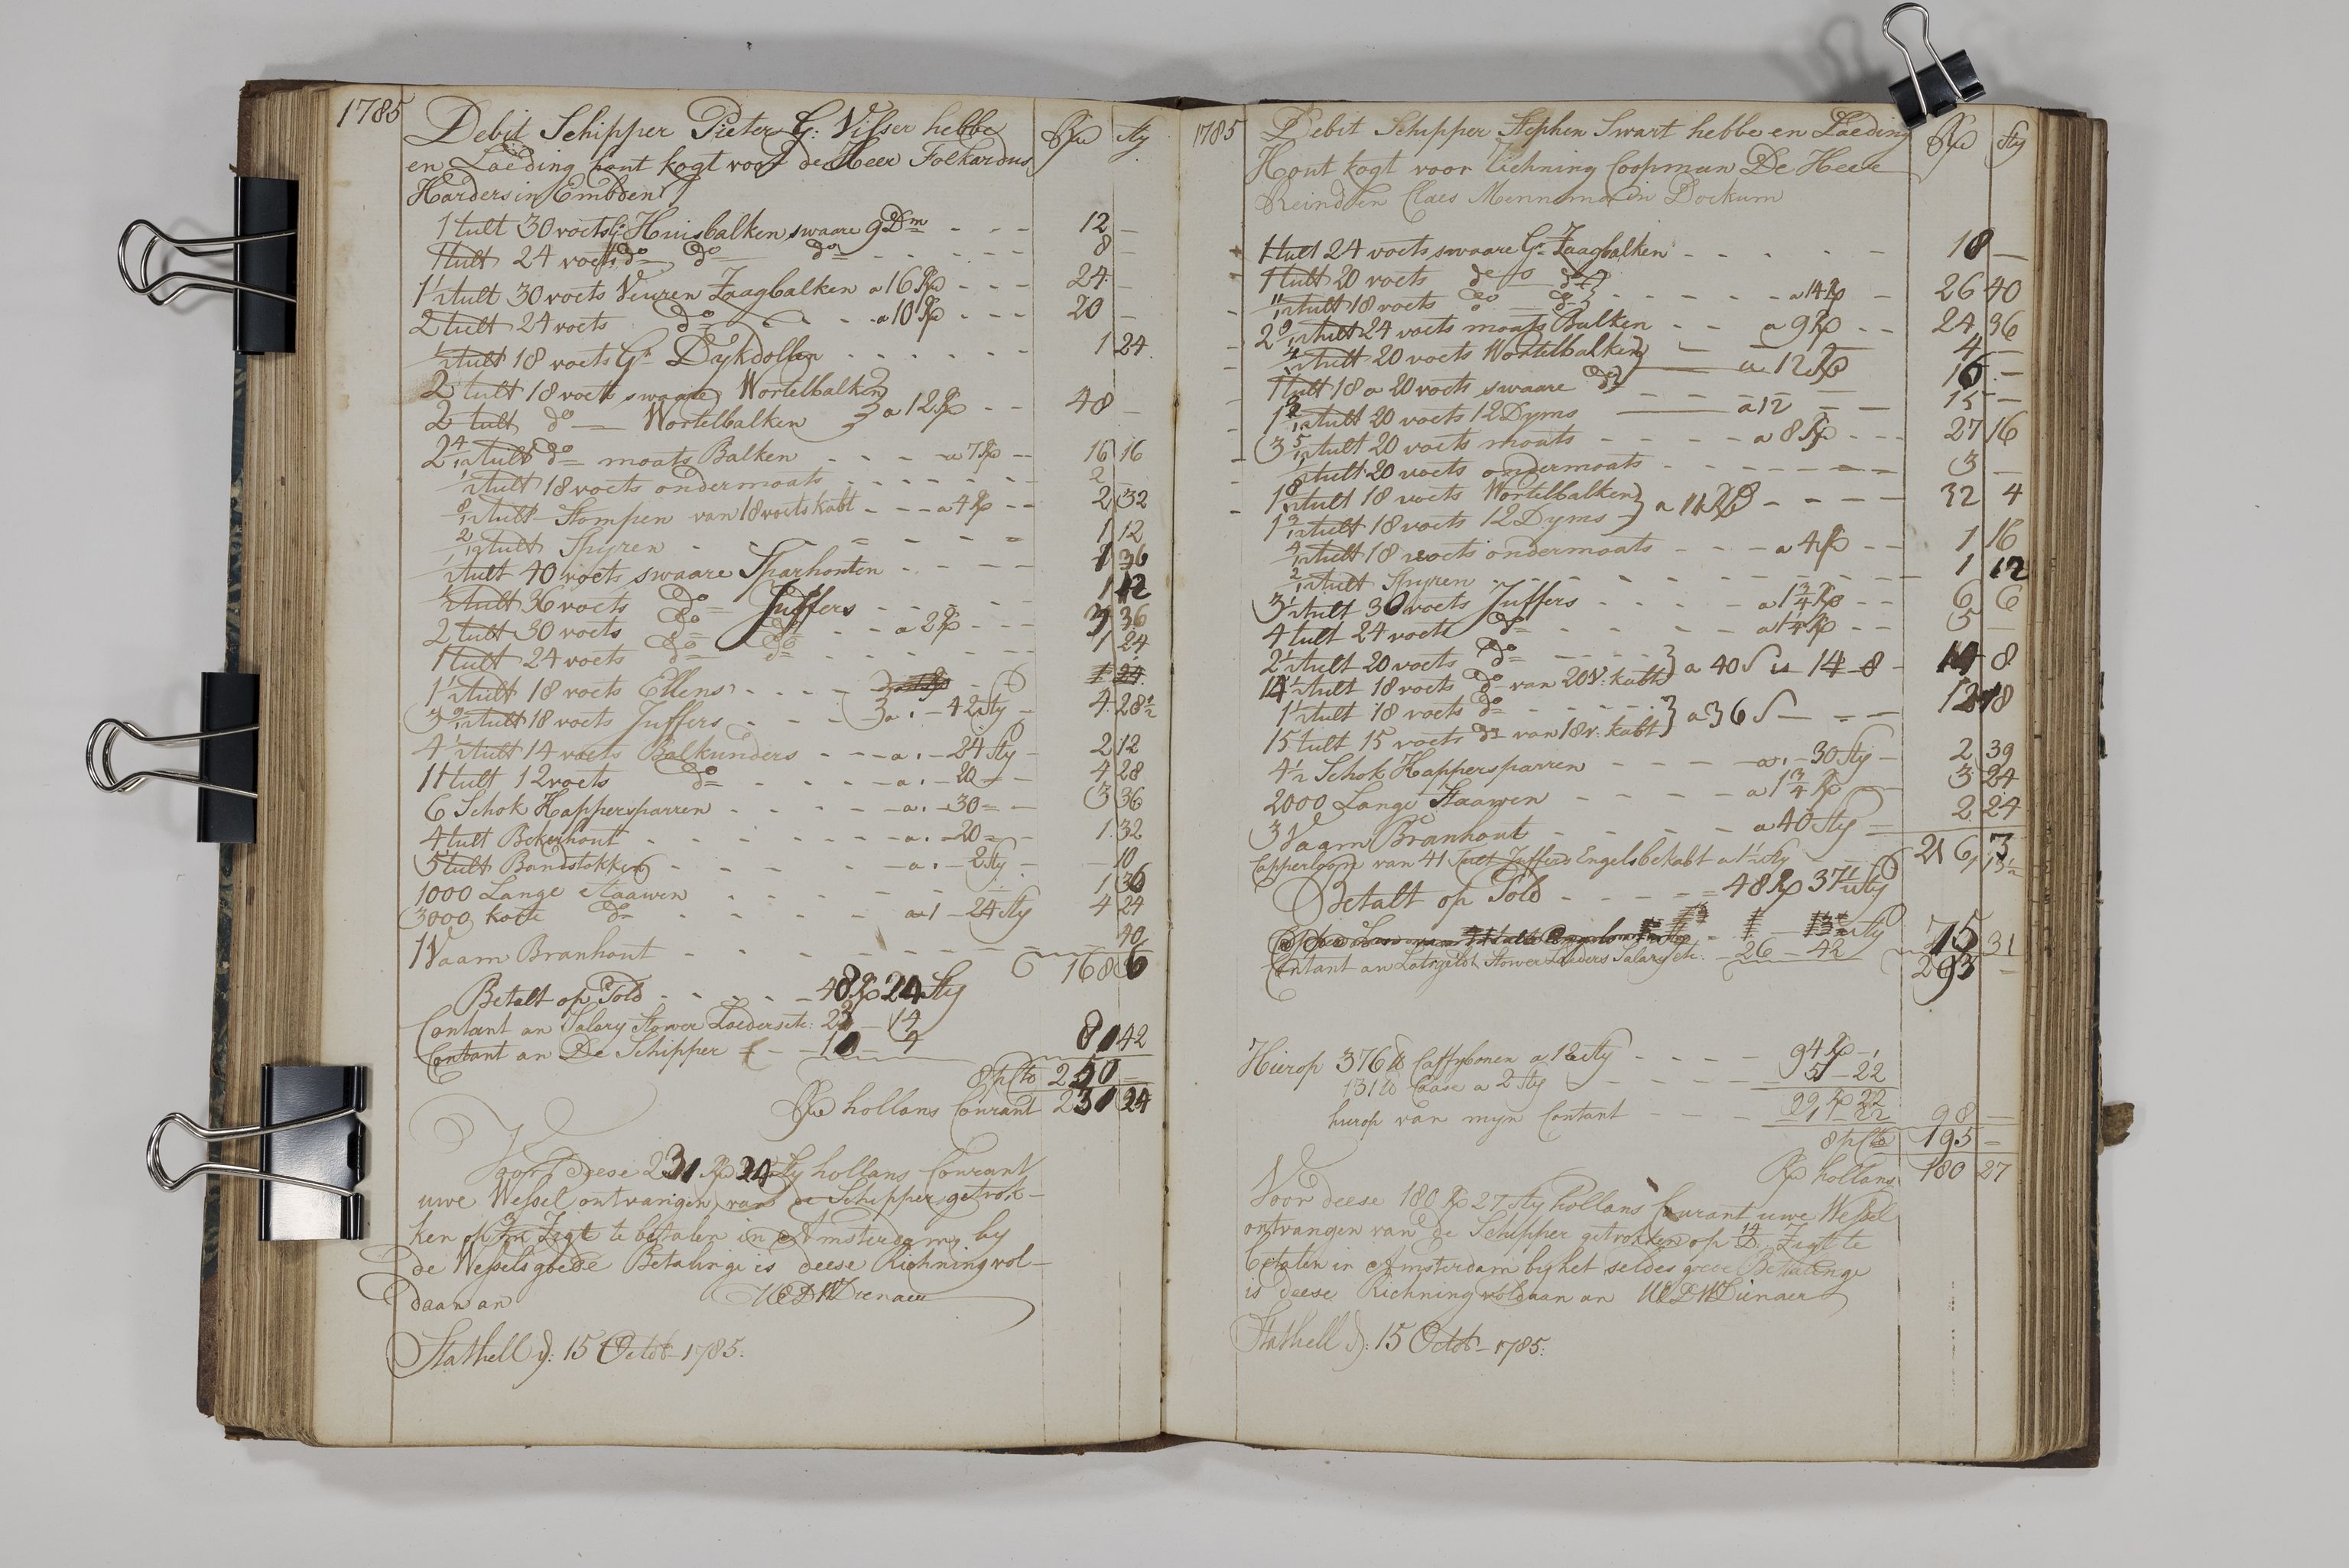 1785
Debit Schipper Pieter G: Visser hebbe Rdr sty
en Laeding hout kogt voor de Heer Folkardus
Harders in Embden
1 tult 30 voets Gr Huisbalken swaare 9 Dm - - - 12 -
1 tult 24 voets do do do - - - 8 -
1 1/2 tult 30 voets Veuren Zaagbalken a 16 Rd - - - 24 -
2 tult 24 voets do - - a 10 Rd - - - 20 -
1/2 tult 18 voets Gr Dykdollen - - - 1 24
2 tult 18 voets swaare Wortelbalken
2 tult do Wortelbalken } a 12 Rd - - 48 -
2 4/12 tult do moats Balken - - - a 7 Rd - - 16 16
1/2 tult 18 voets ondermoats - - - 2 -
8/12 tult Stompen van 18 voets kabt - - - a 4 Rd - - 2 32
2/12 tult Spyren - - - 1 12
1/2 tult 40 voets swaare Sparhouten - - - 1 36
1/2 tult 36 voets do Juffers - - - 1 12
2 tult 30 voets do do - - a 2 Rd - - - 3 36
1 tult 24 voets do do - - - 1 24
1 1/2 tult 18 voets Ellens - - - 1 24
3 9/12 tult 18 voets Juffers - - - a - 42 sty - 4 28 1/2
4 1/2 tult 14 voets Balkunders - - - a - 24 Sty - 2 12
11 tult 12 voets do - - - a - 20 - 4 28
6 Schok Happersparren - - - a - 30 - 3 36
4 tult Bekerhout - - - a - 20 - 1 32
5 tult Bandstokken - - - a - 2 Sty - - 10
1000 Lange Staawen - - - 1 36
3000 kotte do - - - a 1 - 24 Sty 4 24
1 Vaam Branhout - - - 40
168 6
Betalt op Told - - - 48 Rd 24 Sty
Contant an Salary Stower Laeders etc: 23 - 14
Contant an De Schipper - - 10 - 4 80 42
8 p Cto 250 -
Rdr hollans Courant 231 24
Voor deese 231 Rd 24 Sty hollans Courant
uwe Wessel ontvangen van de Schipper getrok-
ken op Zigt te betalen in Amsterdam, by
de Wessels goede Betalinge is deese Richning vol-
daan an
Stathell d: 15 Octob 1785:
1785 Debit Schipper Stephen Swart hebbe en Laeding Rdr Sty
Hout kogt voor Richning Coopman De Heere
Reind en Claes Mennema in Dockum
1 tult 24 voets swaare Gr Zaagbalken - - - 18 -
1 tult 20 voets do do
11/12 tult 18 voets do do } - - - a 14 Rd - 26 40
2 9/12 tult 24 voets moats Balken - - a 9 Rd - - 24 36
4/12 tult 20 voets Wortelbalken 4 -
1 tult 18 a 20 voets swaare do } a 12 Rd 16 -
1 3/12 tult 20 voets 12 Dyms a 12 - - 15 -
3 5/12 tult 20 voets moats - - - a 8 Rd - - - 27 16
tult 20 voets ondermoats - - - 3 -
1 tult 18 voets Wortelbalken
1 tult 18 voets 12 Dyms } a 11 Rd - - - 32 4
4/12 tult 18 voets ondermoats - - - a 4 Rd - - 1 16
2/12 tult Spyren - - - 1 12
3 1/2 tult 30 voets Juffers - - - a 1 3/4 Rd - - 6 6
4 tult 24 voets do - - - a 1 1/4 Rd - - 5 -
2 1/2 tult 20 voets do
14 1/2 tult 18 voets do van 20 V: kabt } a 40 S is 14 - 8 - 14 8
1 1/2 tult 18 voets do
15 tult 15 voets do van 18 v: kabt } a 36 S - - - 12 18
4 1/2 Schok Happersparren - - - a - 30 Sty - 2 39
2000 Lange Staawen - - - a 1 3/4 Rd - 3 24
3 Vaam Branhout - - - a 40 Sty - 2 24
216 3
Capperloon van 41 Tult Juffers Engels bekabt a 1 1/2 Sty - - 1 13 1/2
Betalt op Told - - - 48 Rd 37 1/2 Sty
Contant an Lotsgeldt Stower Laeders Salary etc: - 26 - 42 75 31
293 -
Hierop 376 lb Caffybonen a 12 Sty - - - 94 Rd -
131 lb Caase a 2 Sty - - - 5 - 22
99 Rd 22
hierop van myn Contant - - - 98 -
8 p Cto 195 -
Rdr hollans 180 27
Voor deese 180 Rd 27 Sty hollans Courant uwe Wessel
ontvangen van de Schipper getrokken op 14 D. Zigt te
betalen in Amsterdam by het seldes goede Betalinge
is deese Richning voldaan an
Stathell d: 15 Octob 1785: